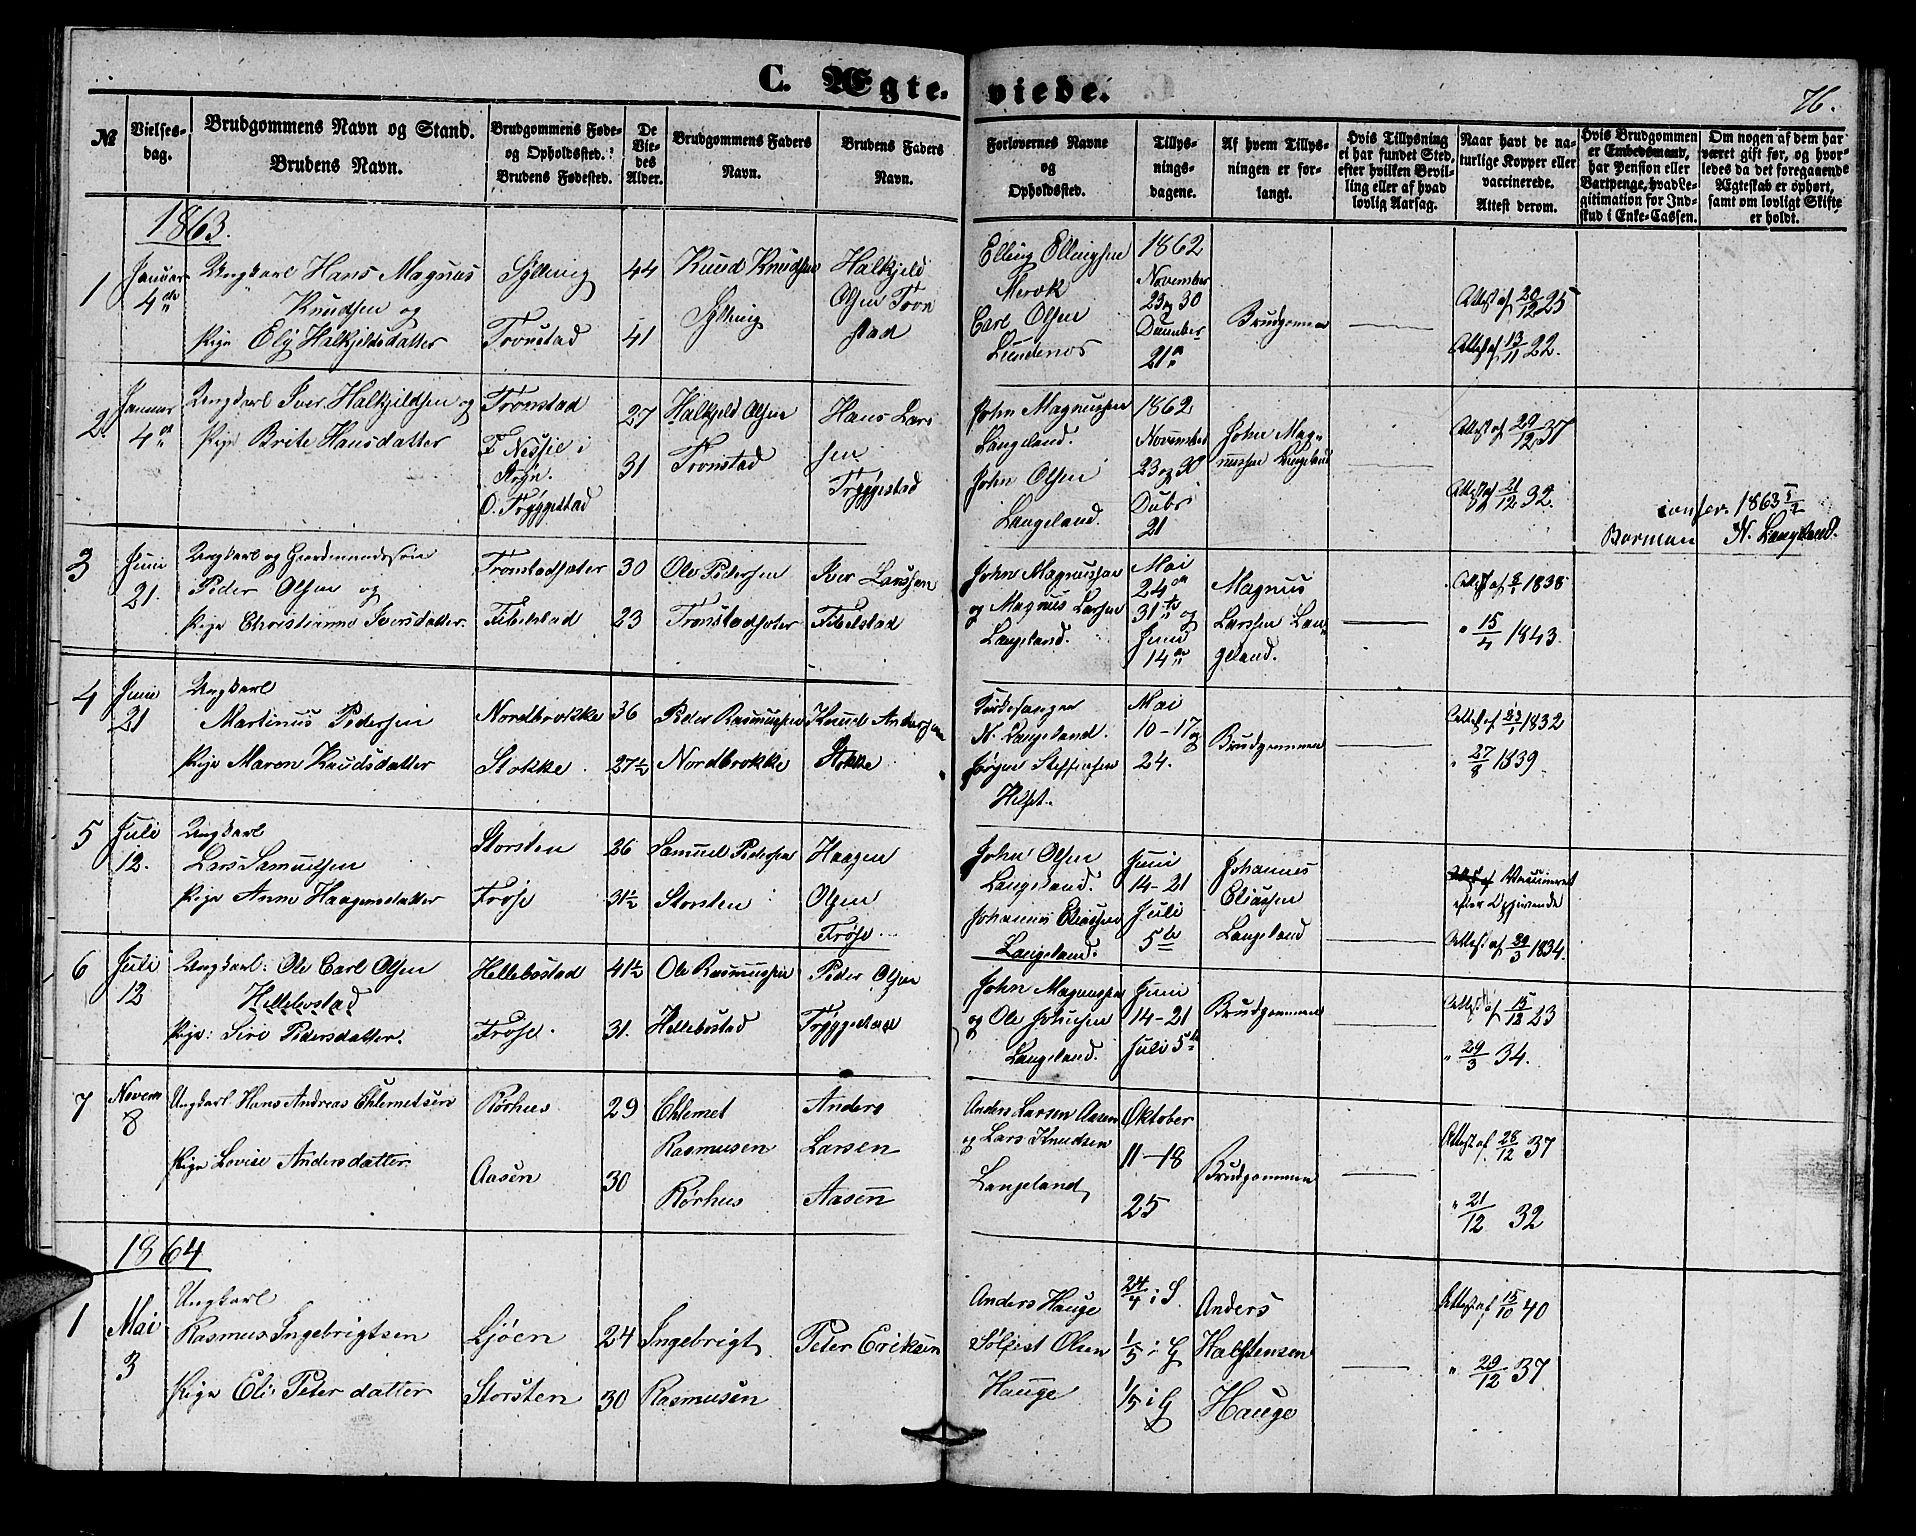 C. Ægte.
viede.
76.
№
Vielses-
dag.
Brudgommens Navn og Stand.
Brudens Navn.
Brudgommens Føde-
og Opholdssted.
Brudens Fødested.
De
Vie-
des
Alder.
Brudgommens Faders
Navn.
Brudens Faders
Navn.
Forlovernes Navne
og
Opholdssted.
Tillys-
nings-
dagene.
Af hvem Tillys-
ningen er for-
langt.
Hvis Tillysning
ei har fundet Sted,
efter hvilken Bevil-
ling eller af hvad
lovlig Aarsag.
Naar havt de na-
turlige Kopper eller
vaccinerede.
Attest derom.
Hvis Brudgommen
er Embedsmand,
har Pension eller
Vartpenge, hvad Le-
gitimation for Ind-
skud i Enke-Cassen.
Om nogen af dem har
været gift før, og hvor-
ledes da det foregaaende
Ægteskab er ophørt,
samt om lovligt Skifte
er holdt.
1863.
1
Januar
4de
Ungkarl Hans Magnus
Knudsen og
Pige Elij Halkjeldsdatter
Sylling
Tronstad
44
41
Knud Knudsen
Sylling
Halkjeld
Olsen Tron
stad
Elling Ellingsen
Merok
Carl Olsen
Lundenes
1862
November
23 og 30
December
21
Brudgommen
Attest af 20/12 25
Attest af 13/11 22.
2
Januar
4de
Ungkarl Iver Halkjeldsen og
Pige Brite Hansdatter
Tronstad
F. Nessje i
Stryn.
O. Tryggestad
27
31
Halkjeld Olsen
Tronstad
Hans Lars
sen
Tryggestad
John Magnussen
Langeland.
John Olsen
Langeland.
1862
November
23 og 30
Decbr
21
John Mag-
nussen Langeland
Attest af 29/12 37
Attest af 21/12 32.
confer. 1863
Borman N. Langeland.
3
Juni
21.
Ungkarl og Gaardmandssøn
Peder Olsen og
Pige Christianne Iversdatter
Tronstadsæter
Fibelstad
30
23
Ole Pedersen
Tronstadsæter
Iver Larssen
Fibelstad
John Magnussen
og Magnus Larsen
Langeland.
Mai
24
31te og
Juni
14
Magnus
Larssen Lan-
geland.
Attest af 1838
" 15/4 1843.
4
Juni
21
Ungkarl
Martinus Pedersen
Pige Maren Knudsdatter
Nordbrokke
Stokke
36
27½
Peder Rasmussen
Nordbrokke
Knud Andersen
Stokke
Kirkesanger
N. Langeland.
Jørgen Steffensen
Helset.
Mai
10-17 og
24.
Brudgommen
Attest af 1832
" 27/8 1839
5
Juli
12.
Ungkarl
Lars Samuelsen
Pige Anne Haagensdatter
Storsten
Frøse
26
31½
Samuel Pedersen
Storsten
Haagen
Olsen
Frøse
John Olsen
Langeland.
Johannes Eliassen
Langeland.
Juni
14-21
Juli
5te
Johannes
Eliassen
Langeland
Vaccineret
efter Opgivende
Attest af 29/3 1834.
6
Juli
12
Ungkarl: Ole Carl Olsen
Hellebostad
Pige: Siri Pedersdatter.
Hellebostad
Frøse.
41½
31.
Ole Rasmussen
Hellebostad
Peder Olsen
Tryggestad
John Magnussen
og Ole Johnsen
Langeland.
Juni
14-21
Juli 5te
Brudgommen
Attest af 15/12 23
" 29/3 34.
7
Novem
8
Ungkarl Hans Andreas Chlemetsen
Pige Lovise Andersdatter
Rørhus
Aasen
29
30
Chlemet
Rasmusen
Rørhus
Anders
Larsen
Aasen
Anders Larsen Aasen
og Lars Knudsen
Langeland
Oktober
11-18
25
Brudgommen
Attest af 28/12 37
" 21/12 32
1864
1
Mai
3
Ungkarl
Rasmus Ingebrigtsen
Pige Eli Peter datter
Ljøen
Storsten
24
30
Ingebrigt
Rasmusen
Peter Eriksen
Anders Hauge
Sølfest Olsen
Hauge
24/4 i S.
1/5 i G
1/5 i G
Anders
Halstensen
Hauge
Attest af 15/10 40
" 29/12 37